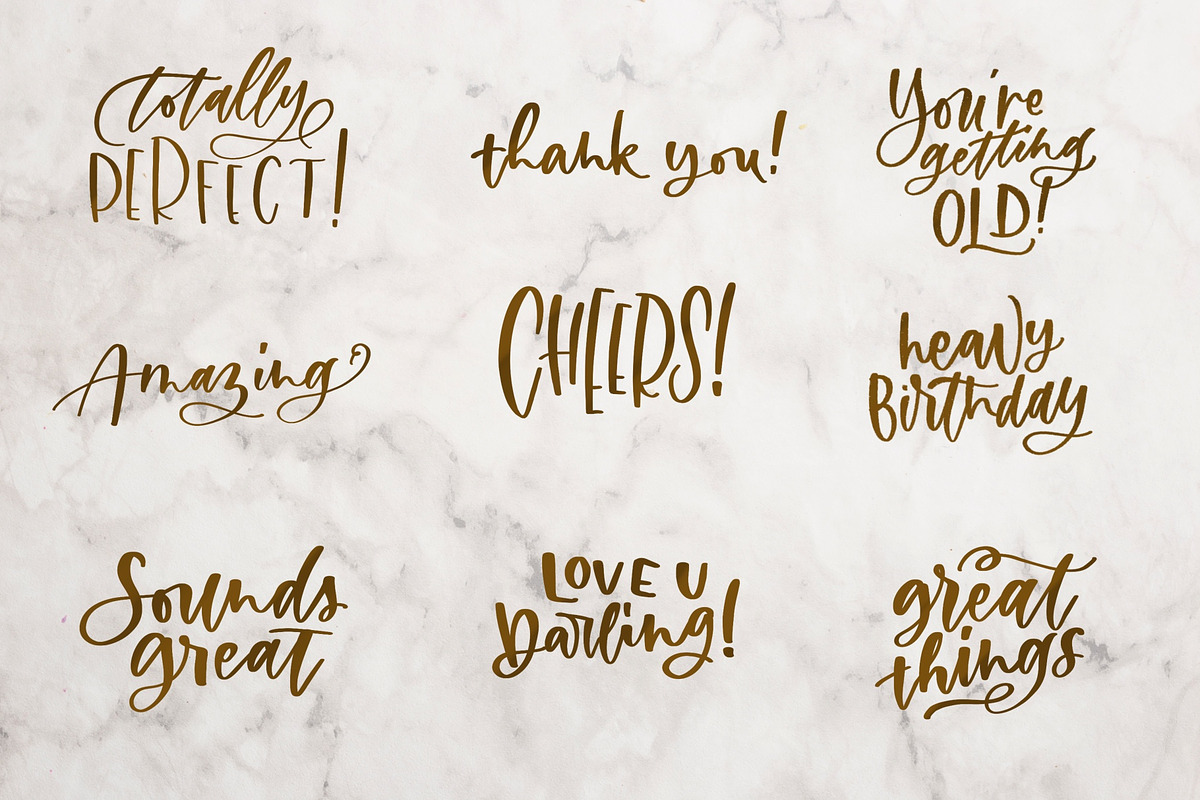 totally
PERFECT!
thank you!
You're
getting
OLD!
Amazing
CHEERS!
heavy
Birthday
Sounds
great
LOVE U
Darling!
great
things